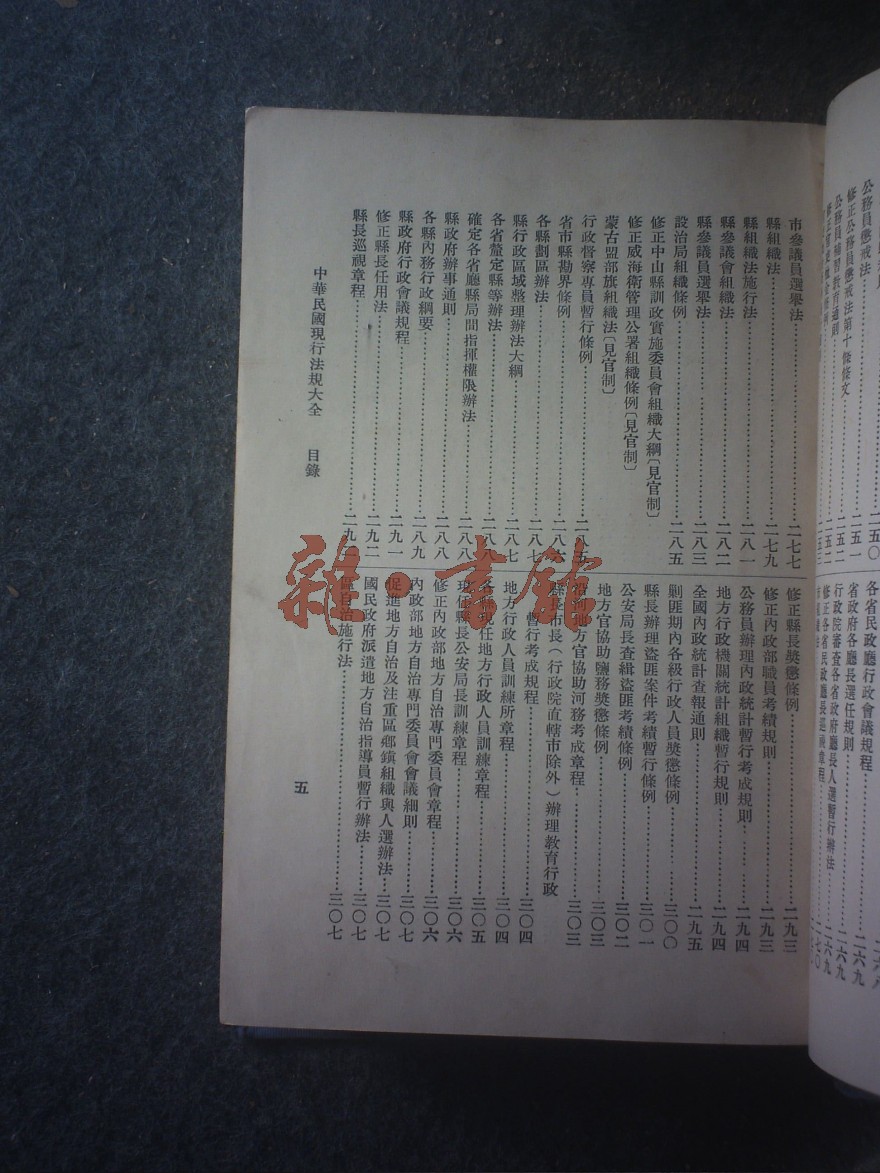 市參議員選舉法……二七七
縣組織法……二七九
縣組織法施行法……二八一
縣參議會組織法……二八二
縣參議員選舉法……二八三
設治局組織條例……二八五
修正中山縣訓政實施委員會組織大綱〔見官制〕
修正威海衛管理公署組織條例〔見官制〕
蒙古盟部旗組織法〔見官制〕
行政督察專員暫行條例……二八五
省市縣勘界條例……二八六
各縣劃區辦法……二八七
縣行政區域整理辦法大綱……二八七
各省釐定縣等辦法……二八八
確定各省廳縣局間指揮權限辦法……二八八
縣政府辦事通則……二八八
各縣內務行政綱要……二八九
縣政府行政會議規程……二九一
修正縣長任用法……二九二
縣長巡視章程……二九二
修正縣長獎懲條例……二九三
修正內政部職員考績規則……二九三
公務員辦理內政統計暫行考成規則……二九四
地方行政機關統計組織暫行規則……二九四
全國內政統計查報通則……二九五
剿匪期內各級行政人員獎懲條例……三〇〇
縣長辦理盜匪案件考績暫行條例……三〇一
公安局長查緝盜匪考績條例……三〇二
地方官協助鹽務獎懲條例……三〇三
沿河地方官協助河務考成章程……三〇三
縣長市長（行政院直轄市除外）辦理教育行政
暫行考成規程……三〇四
地方行政人員訓練所章程……三〇四
各縣現任地方行政人員訓練章程……三〇五
現任縣長公安局長訓練章程……三〇六
修正內政部地方自治專門委員會章程……三〇六
內政部地方自治專門委員會會議細則……三〇七
促進地方自治及注重區鄉鎮組織與人選辦法……三〇七
國民政府派遣地方自治指導員暫行辦法……三〇七
區自治施行法……三〇七
中華民國現行法規大全 目錄
五
公務員懲戒法
修正公務員懲戒法第十條條文
公務員補習教育通則
各省民政廳行政會議規程
省政府各廳長選任規則
行政院審查各省政府廳長人選暫行辦法
修正各省民政廳長巡視章程
雜·書館